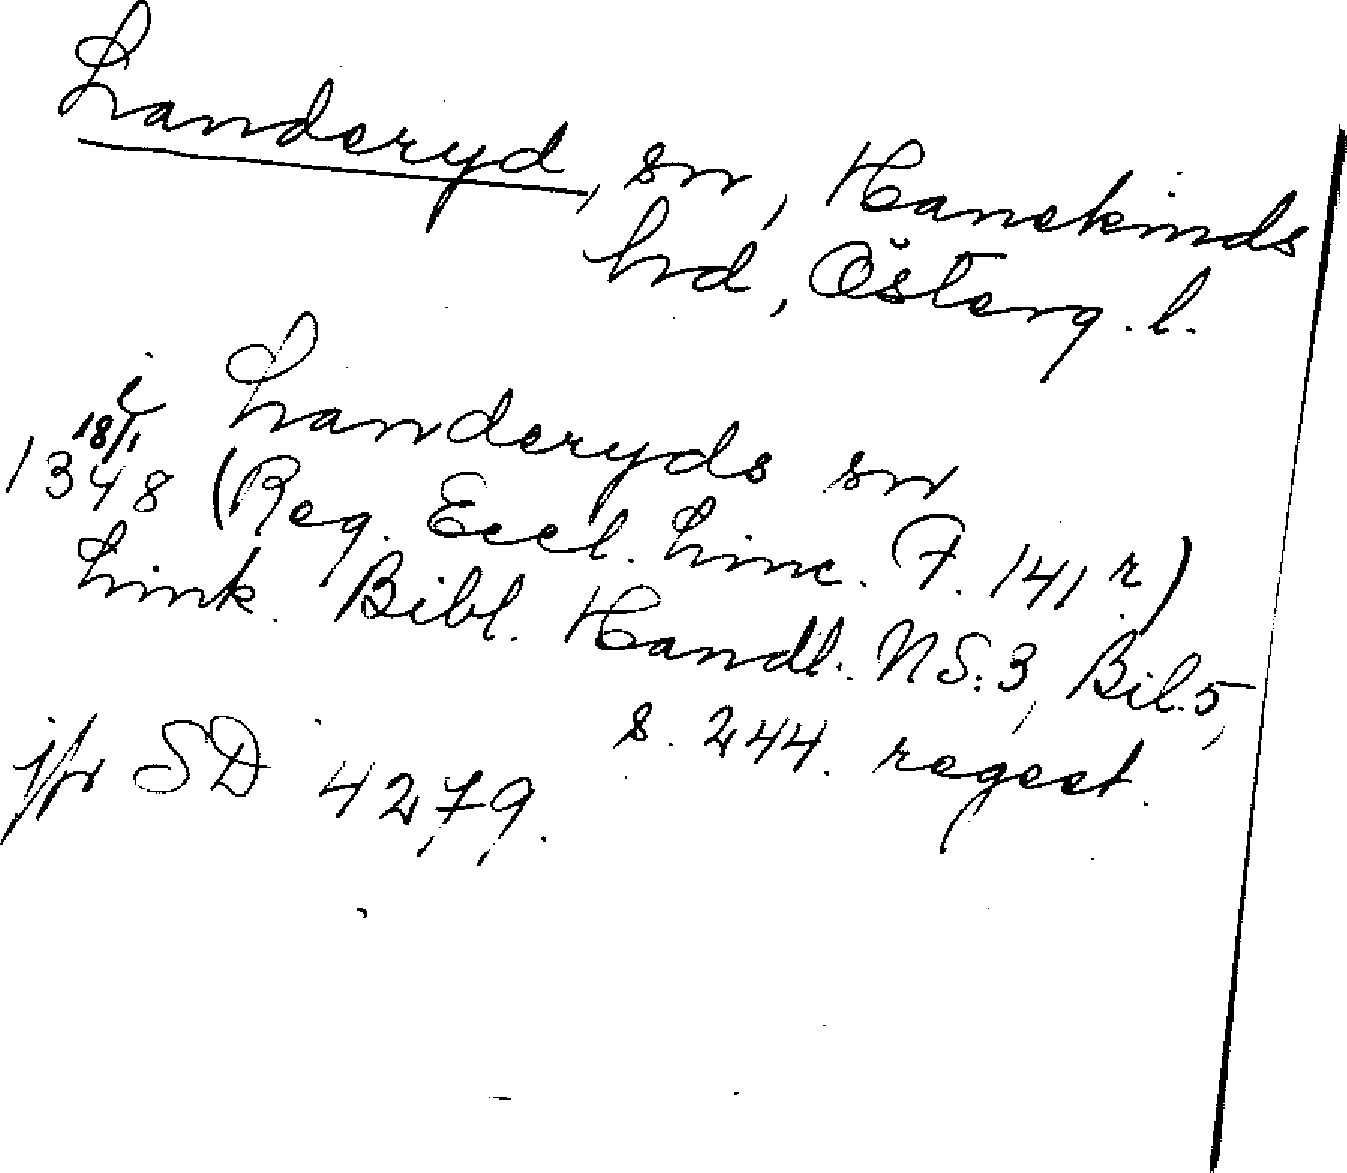 Landeryd, sn, Hanekinds
hrd, Österg. l.
i Landeryds sn
18/1
1348 (Reg. Eccl. Linc. F. 141 r.)
Link. Bibl. Handl. NS:3, Bil. 5,
s. 244. regest.
jfr SD 4279.